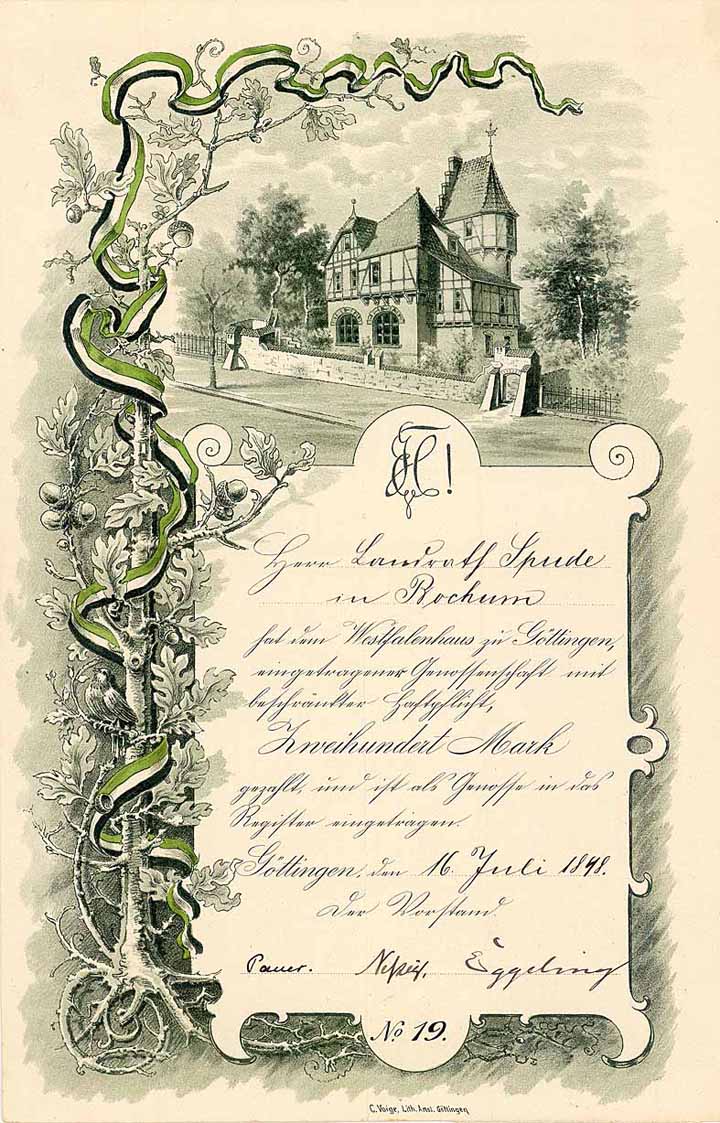 Herr Landrath Spude
in Bochum
hat dem Westfalenhaus zu Göttingen,
eingetragener Genossenschaft mit
beschränkter Haftpflicht,
Zweihundert Mark
gezahlt, und ist als Genosse in das
Register eingetragen.
Göttingen, den 16. Juli 1898.
Der Vorstand.
Pauer. Eggeling
No 19.
C. Voige, Lith. Anst. Göttingen